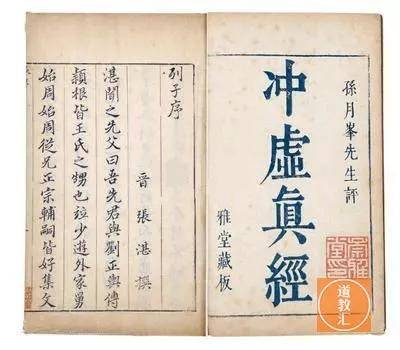 孫月峯先生評
冲虛眞經
雅堂藏板
道教汇
列子序
晉張湛撰
湛聞之先父曰吾先君與劉正輿傅
頴根皆王氏之甥也竝少遊外家舅
始周始周從兄正宗輔嗣皆好集文